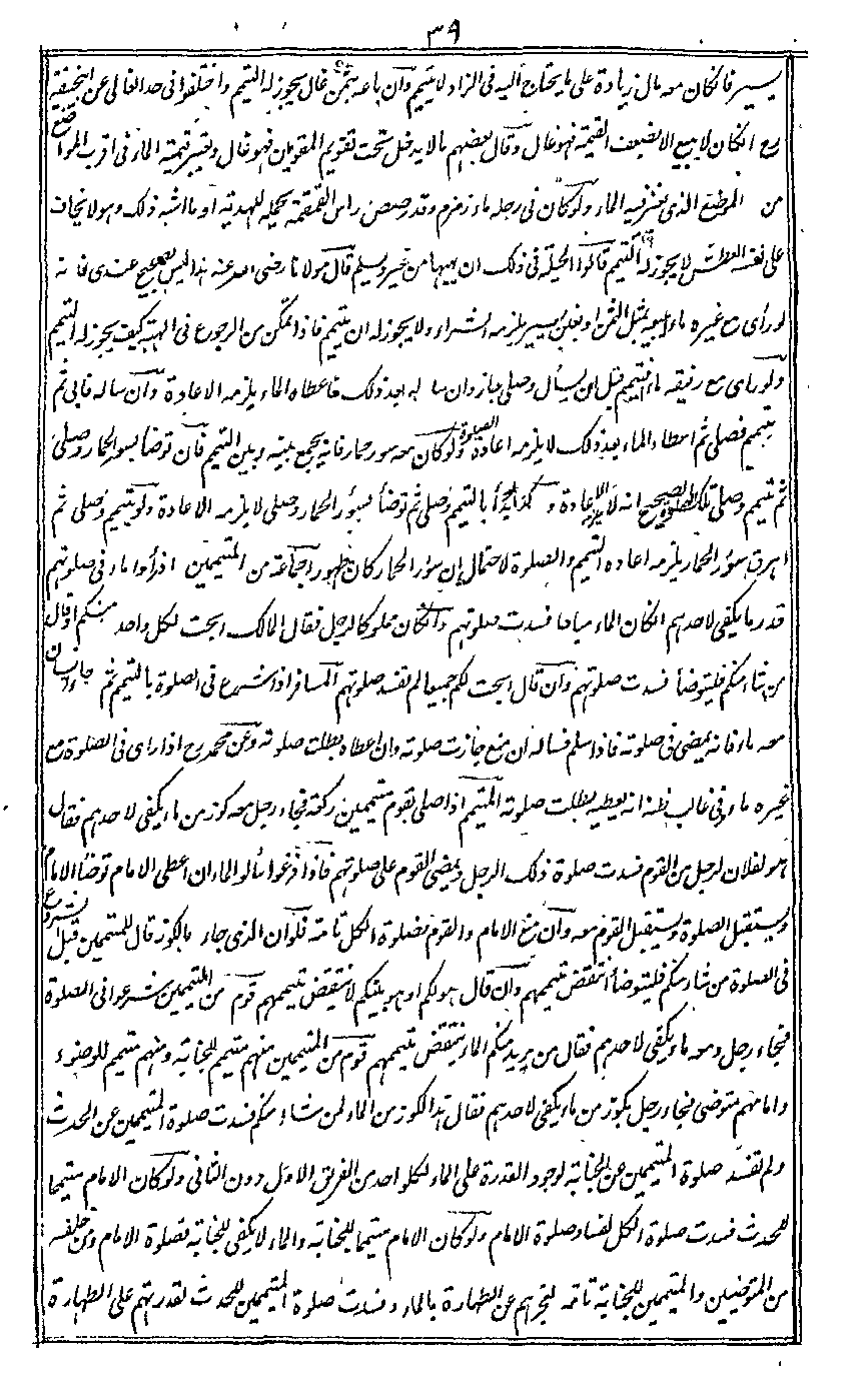 ٣٩
يسير فان كان معه مال زيادة على ما يحتاج اليه فى الزاد لا يتيمم وان باعه بثمن غال يجوز له التيمم واختلفوا فى حد الغالى عن ابيحنيفة
رح ان كان لا يبيع الا بضعف القيمة فهو غال وقال بعضهم ما لا يدخل تحت تقويم المقومين فهو غال ويعتبر قيمة الماء فى اقرب المواضع
من الموضع الذى يعز فيه الماء ولو كان فى رحله ماء زمزم وقد رصص راس القمقمة يحمله للهدية او ما اشبه ذلك وهو لا يخاف
على نفسه العطش لا يجوز له التيمم قالوا الحيلة فى ذلك ان يهبها من غيره ويسلم قال مولانا رضى الله عنه هذا ليس بصحيح عندى فانه
لو رأى مع غيره ماء يبيعه بمثل الثمن او بغبن يسير يلزمه الشراء ولا يجوز له ان يتيمم فاذا تمكن من الرجوع فى الهبة كيف يجوز له التيمم
ولو راى مع رفيقه ماء فتيمم قبل ان يسأل وصلى جاز وان ساله بعد ذلك فاعطاه الماء يلزمه الاعادة وان ساله فابى ثم
تيمم فصلى ثم اعطاه الماء بعد ذلك لا يلزمه اعادة الصلوة ولو كان معه سور حمار فانه يجمع بينه وبين التيمم فان توضا بسور الحمار وصلى
ثم تيمم وصلى تلك الصلوة الصحيح انه لا يلزمه الاعادة و كذا لو بدأ بالتيمم وصلى ثم توضأ بسؤر الحمار وصلى لا يلزمه الاعادة ولو تيمم وصلى ثم
اهرق سؤر الحمار يلزمه اعادة التيمم والصلوة لاحتمال ان سؤر الحمار كان طهورا جماعة من المتيممين اذا رأوا ماء فى صلوتهم
قدر ما يكفى لاحدهم ان كان الماء مباحا فسدت صلوتهم وان كان مملوكا لرجل فقال المالك ابحت لكل واحد منكم او قال
من شاء منكم فليتوضأ فسدت صلوتهم وان قال ابحت لكم جميعا لم تفسد صلوتهم المسافر اذا شرع فى الصلوة بالتيمم ثم جاء انسان
معه ماء فانه يمضى فى صلوته فاذا سلم فساله ان منع جازت صلوته وان اعطاه بطلت صلوته وعن محمد رح اذا راى فى الصلوة مع
غيره ماء وفى غالب ظنه انه يعطيه بطلت صلوته المتيمم اذا صلى بقوم متيممين ركعة فجاء رجل معه كوز من ماء يكفى لاحدهم فقال
هو لفلان لرجل من القوم فسدت صلوة ذلك الرجل ويمضى القوم على صلوتهم فاذا فرغوا سألوا الماء ان اعطى الامام توضأ الامام
ويستقبل الصلوة ويستقبل القوم معه وان منع الامام والقوم فصلوة الكل تامة فلو ان الذى جاء بالكوز قال للمتيممين قبل الشروع
فى الصلوة من شاء منكم فليتوضأ انتقض تيممهم وان قال هو لكم او هو بينكم لا ينتقض تيممهم قوم من المتيممين شرعوا فى الصلوة
فجاء رجل ومعه ماء يكفى لاحدهم فقال من يريد منكم الماء ينتقض تيممهم قوم من المتيممين منهم متيمم للجنابة ومنهم متيمم للوضوء
وامامهم متوضى فجاء رجل بكوز من ماء يكفى لاحدهم فقال هذا الكوز من الماء لمن شاء منكم فسدت صلوة المتيممين عن الحدث
ولم تفسد صلوة المتيممين عن الجنابة لوجود القدرة على الماء لكل واحد من الفريق الاول دون الثانى ولو كان الامام متيمما
للحدث فسدت صلوة الكل لفساد صلوة الامام ولو كان الامام متيمما للجنابة والماء لا يكفى للجنابة فصلوة الامام ومن خلفه
من المتوضيين والمتيممين للجنابة تامة لعجزهم عن الطهارة بالماء وفسدت صلوة المتيممين للحدث لقدرتهم على الطهارة